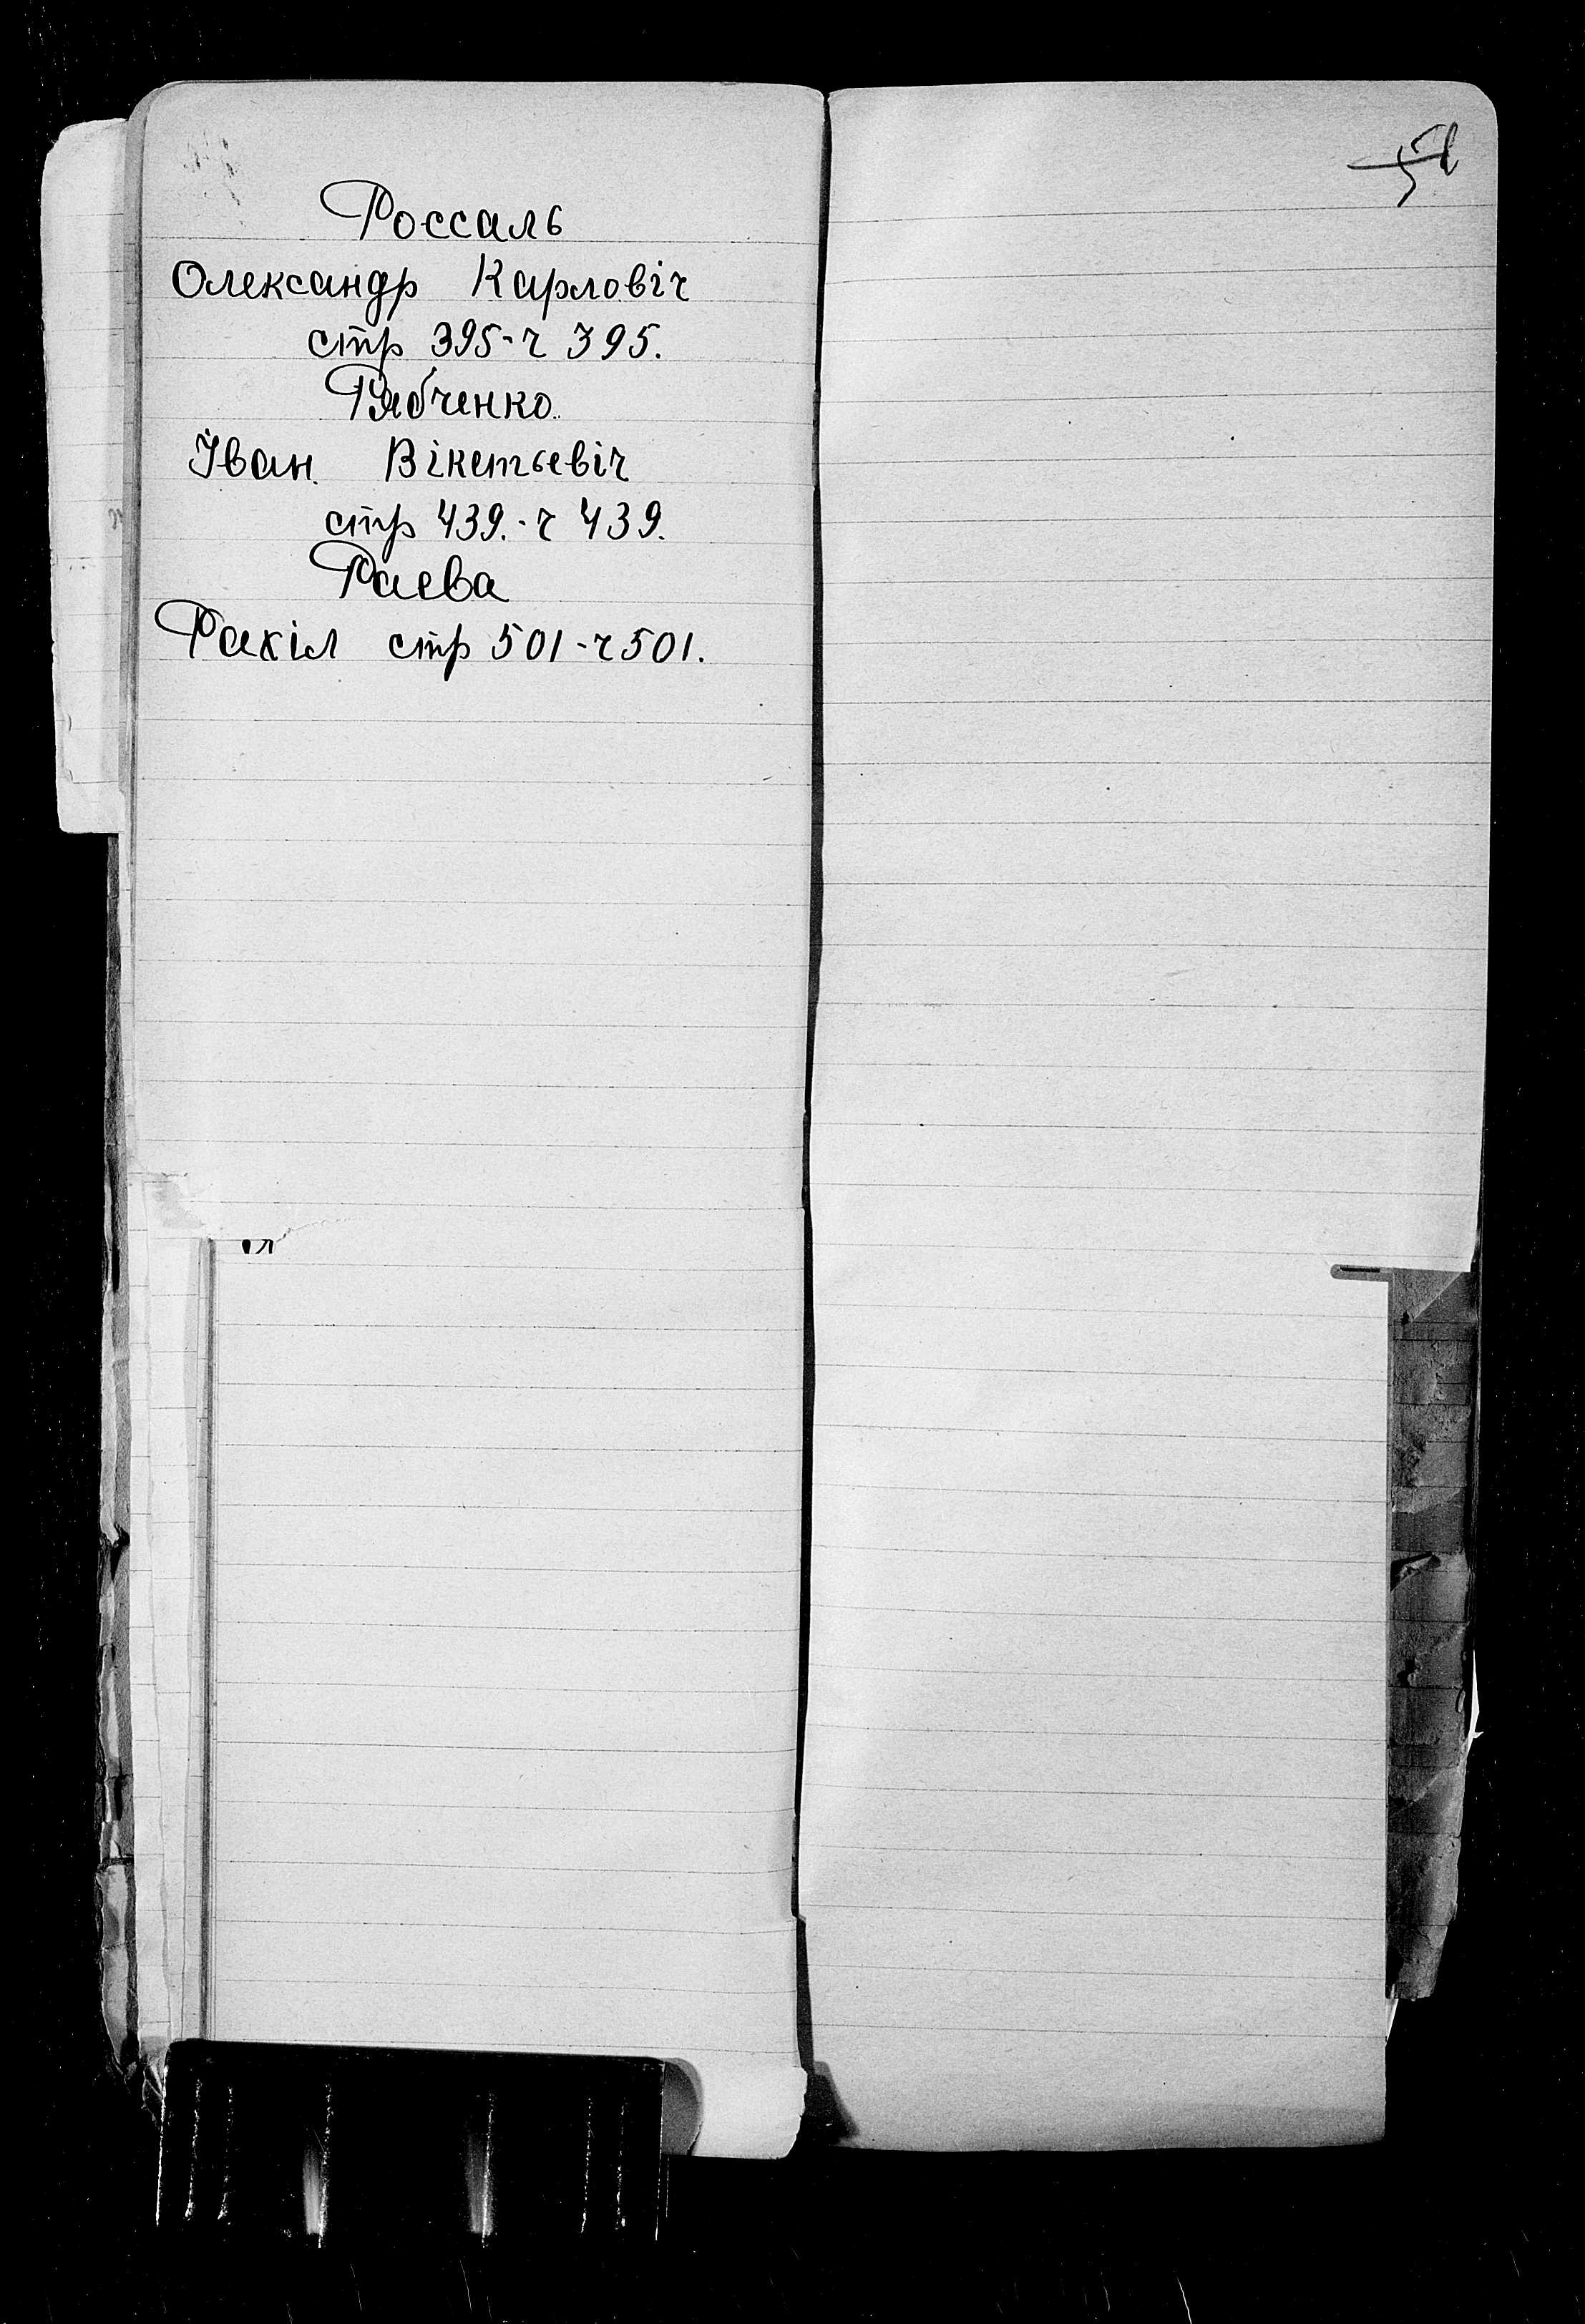 Россаль
Олександр Карловіч
стр 395-ч 395.
Рябченко.
Іван. Вікетьевіч
стр 439.-ч 439.
Раева
Рахіл стр 501-ч 501.
я